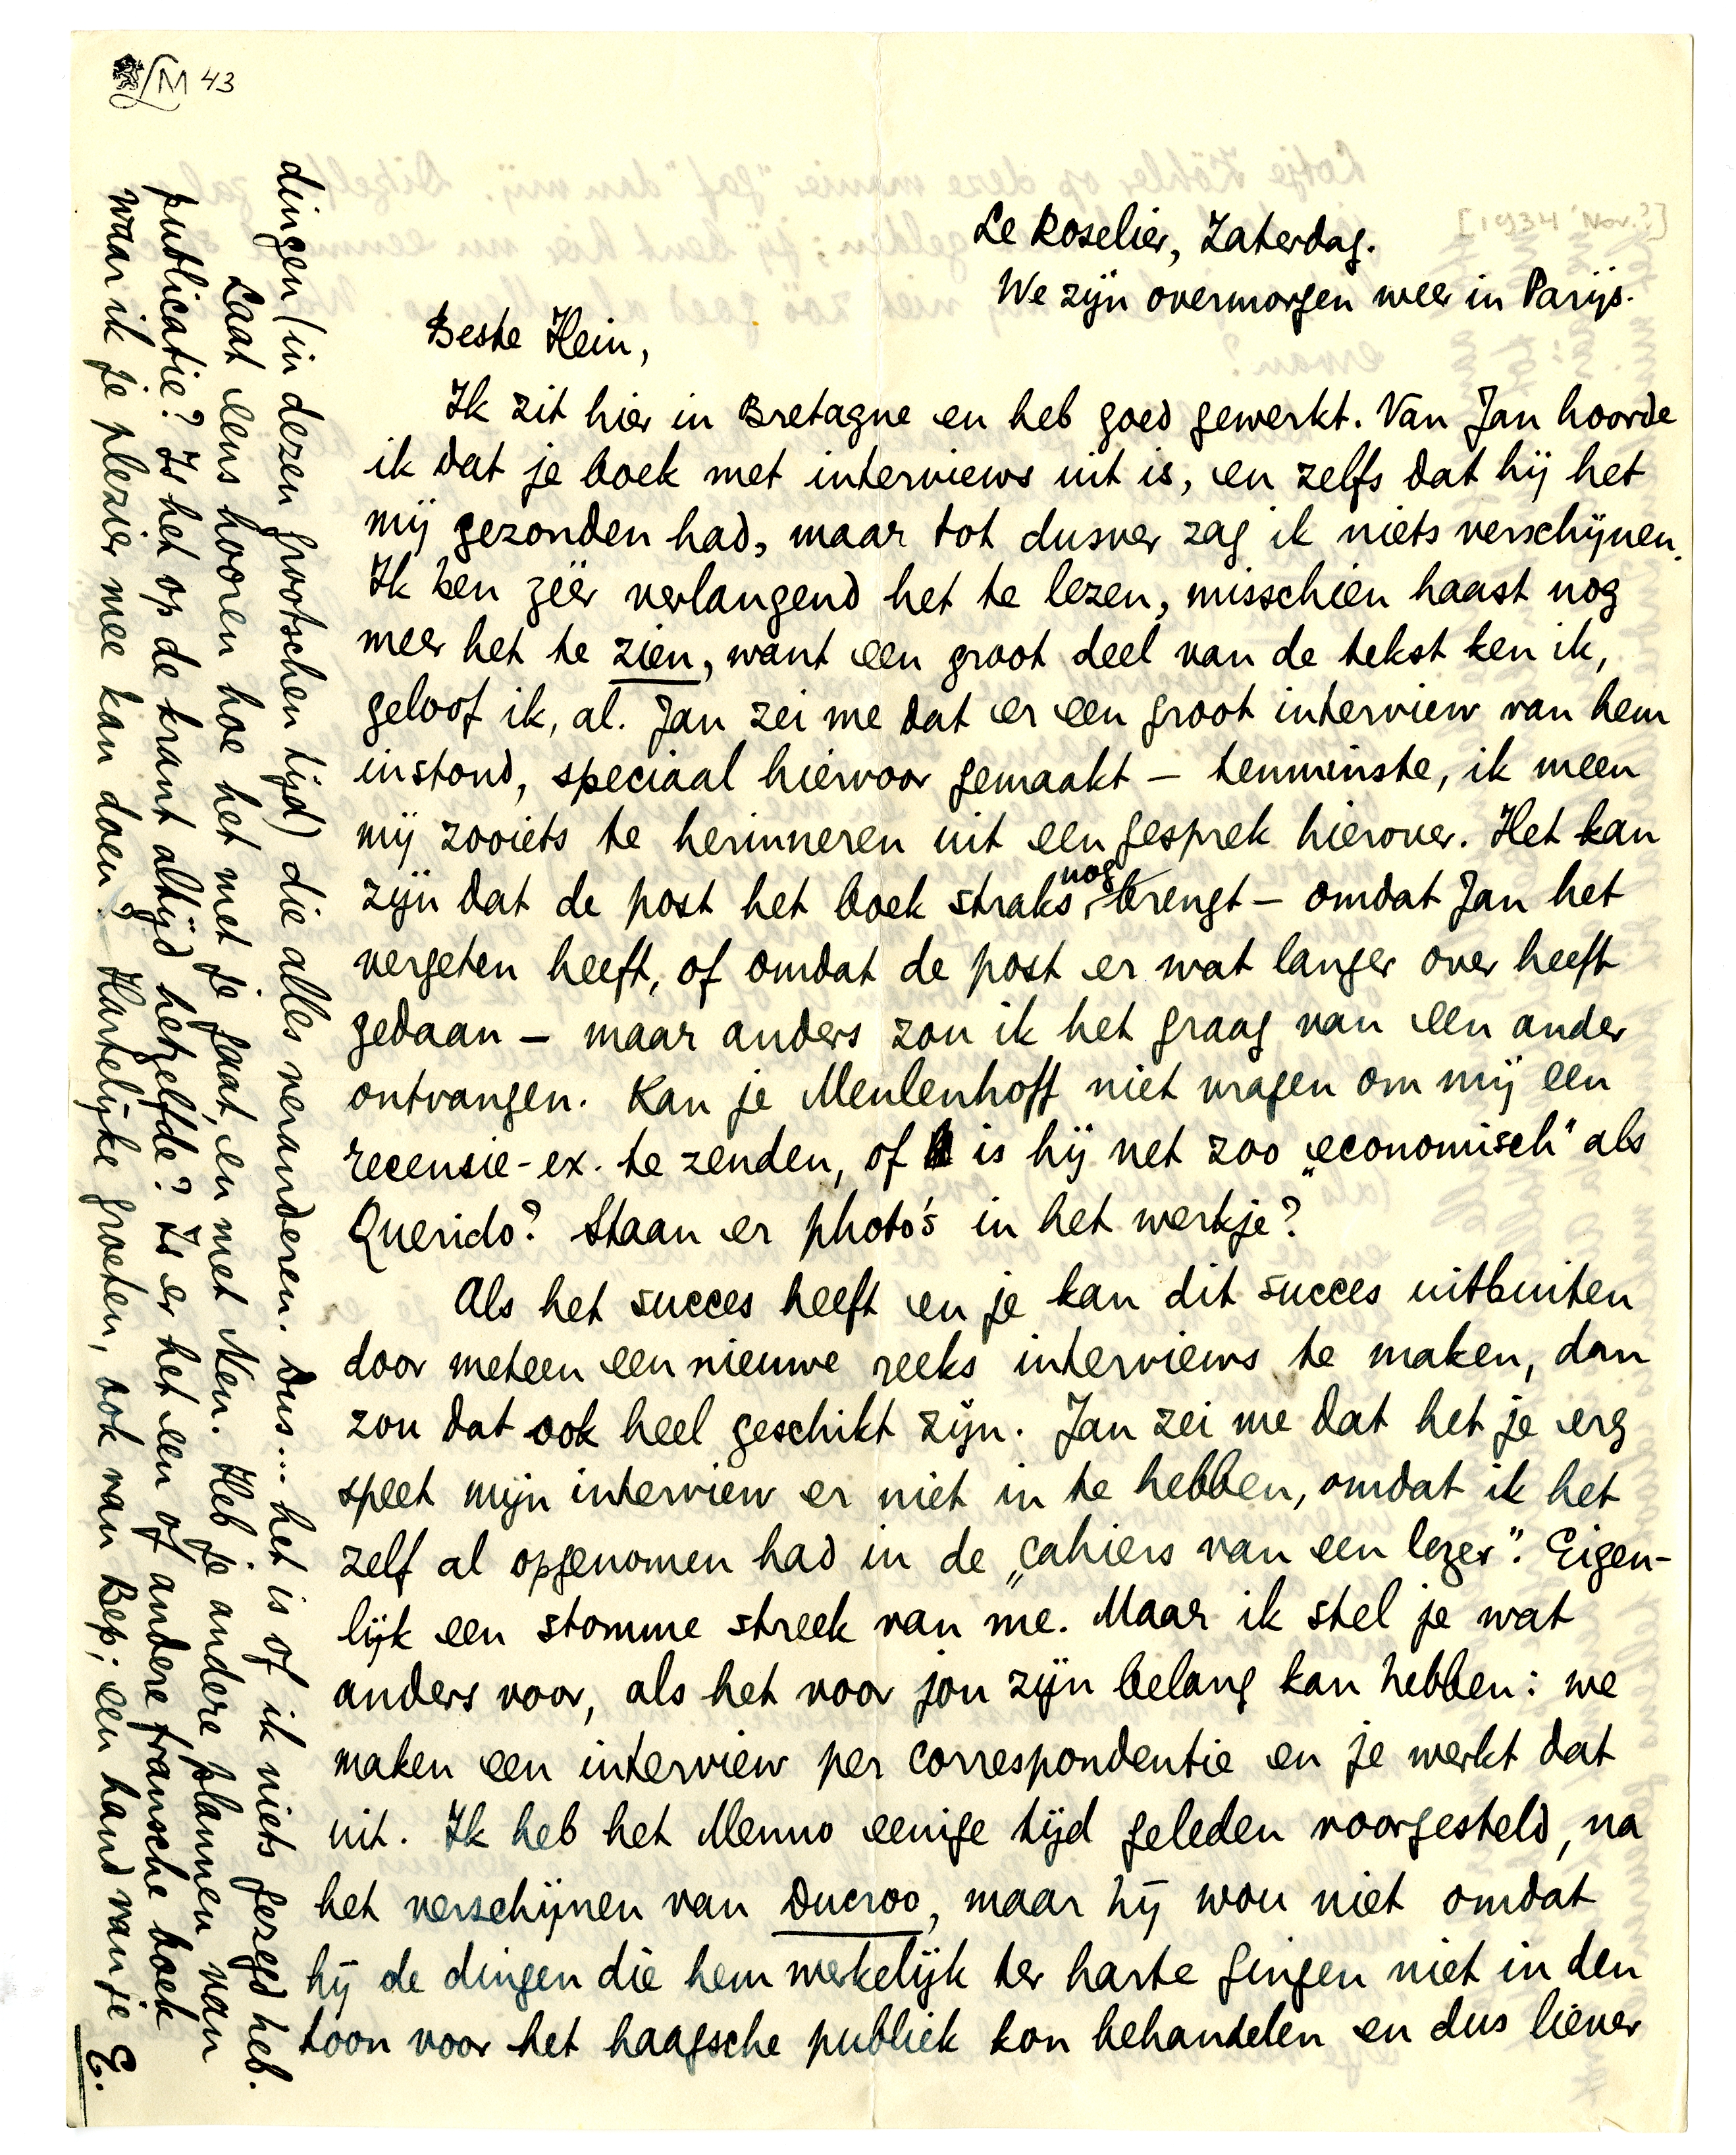 LM 43
[1934 Nov.?]
Le Roselier, Zaterdag.
We zijn overmorgen weer in Parijs.
Beste Hein,
Ik zit hier in Bretagne en heb goed gewerkt. Van Jan hoorde
ik dat je boek met interviews uit is, en zelfs dat hij het
mij gezonden had, maar tot dusver zag ik niets verschijnen.
Ik ben zéér verlangend het te lezen, misschien haast nog
meer het te zien, want een groot deel van de tekst ken ik,
geloof ik, al. Jan zei me dat er een groot interview van hem
instond, speciaal hiervoor gemaakt – tenminste, ik meen
mij zooiets te herinneren uit een gesprek hierover. Het kan
zijn dat de post het boek straks nog brengt – omdat Jan het
vergeten heeft, of omdat de post er wat langer over heeft
gedaan – maar anders zou ik het graag van een ander
ontvangen. Kan je Meulenhoff niet vragen om mij een
recensie-ex. te zenden, of is hij net zoo „economisch" als
Querido? Staan er photo's in het werkje?
Als het succes heeft en je kan dit succes uitbuiten
door meteen een nieuwe reeks interviews te maken, dan
zou dat ook heel geschikt zijn. Jan zei me dat het je erg
speet mijn interview er niet in te hebben, omdat ik het
zelf al opgenomen had in de „cahiers van een lezer". Eigen-
lijk een stomme streek van me. Maar ik stel je wat
anders voor, als het voor jou zijn belang kan hebben: we
maken een interview per correspondentie en je werkt dat
uit. Ik heb het Menno eenige tijd geleden voorgesteld, na
het verschijnen van Ducroo, maar hij wou niet omdat
hij de dingen die hem werkelijk ter harte gingen niet in den
toon voor het haagsche publiek kon behandelen en dus liever
dingen (in dezen grootschen tijd) die alles veranderen. Dus... het is of ik niets gezegd heb.
Laat eens hooren hoe het met je gaat, en met Nen. Heb je andere plannen van
publicatie? Is het op de krant altijd hetzelfde? Is er het een of andere fransche boek
waar ik je plezier mee kan doen? Hartelijke groeten, ook van Bep; een hand van je E.